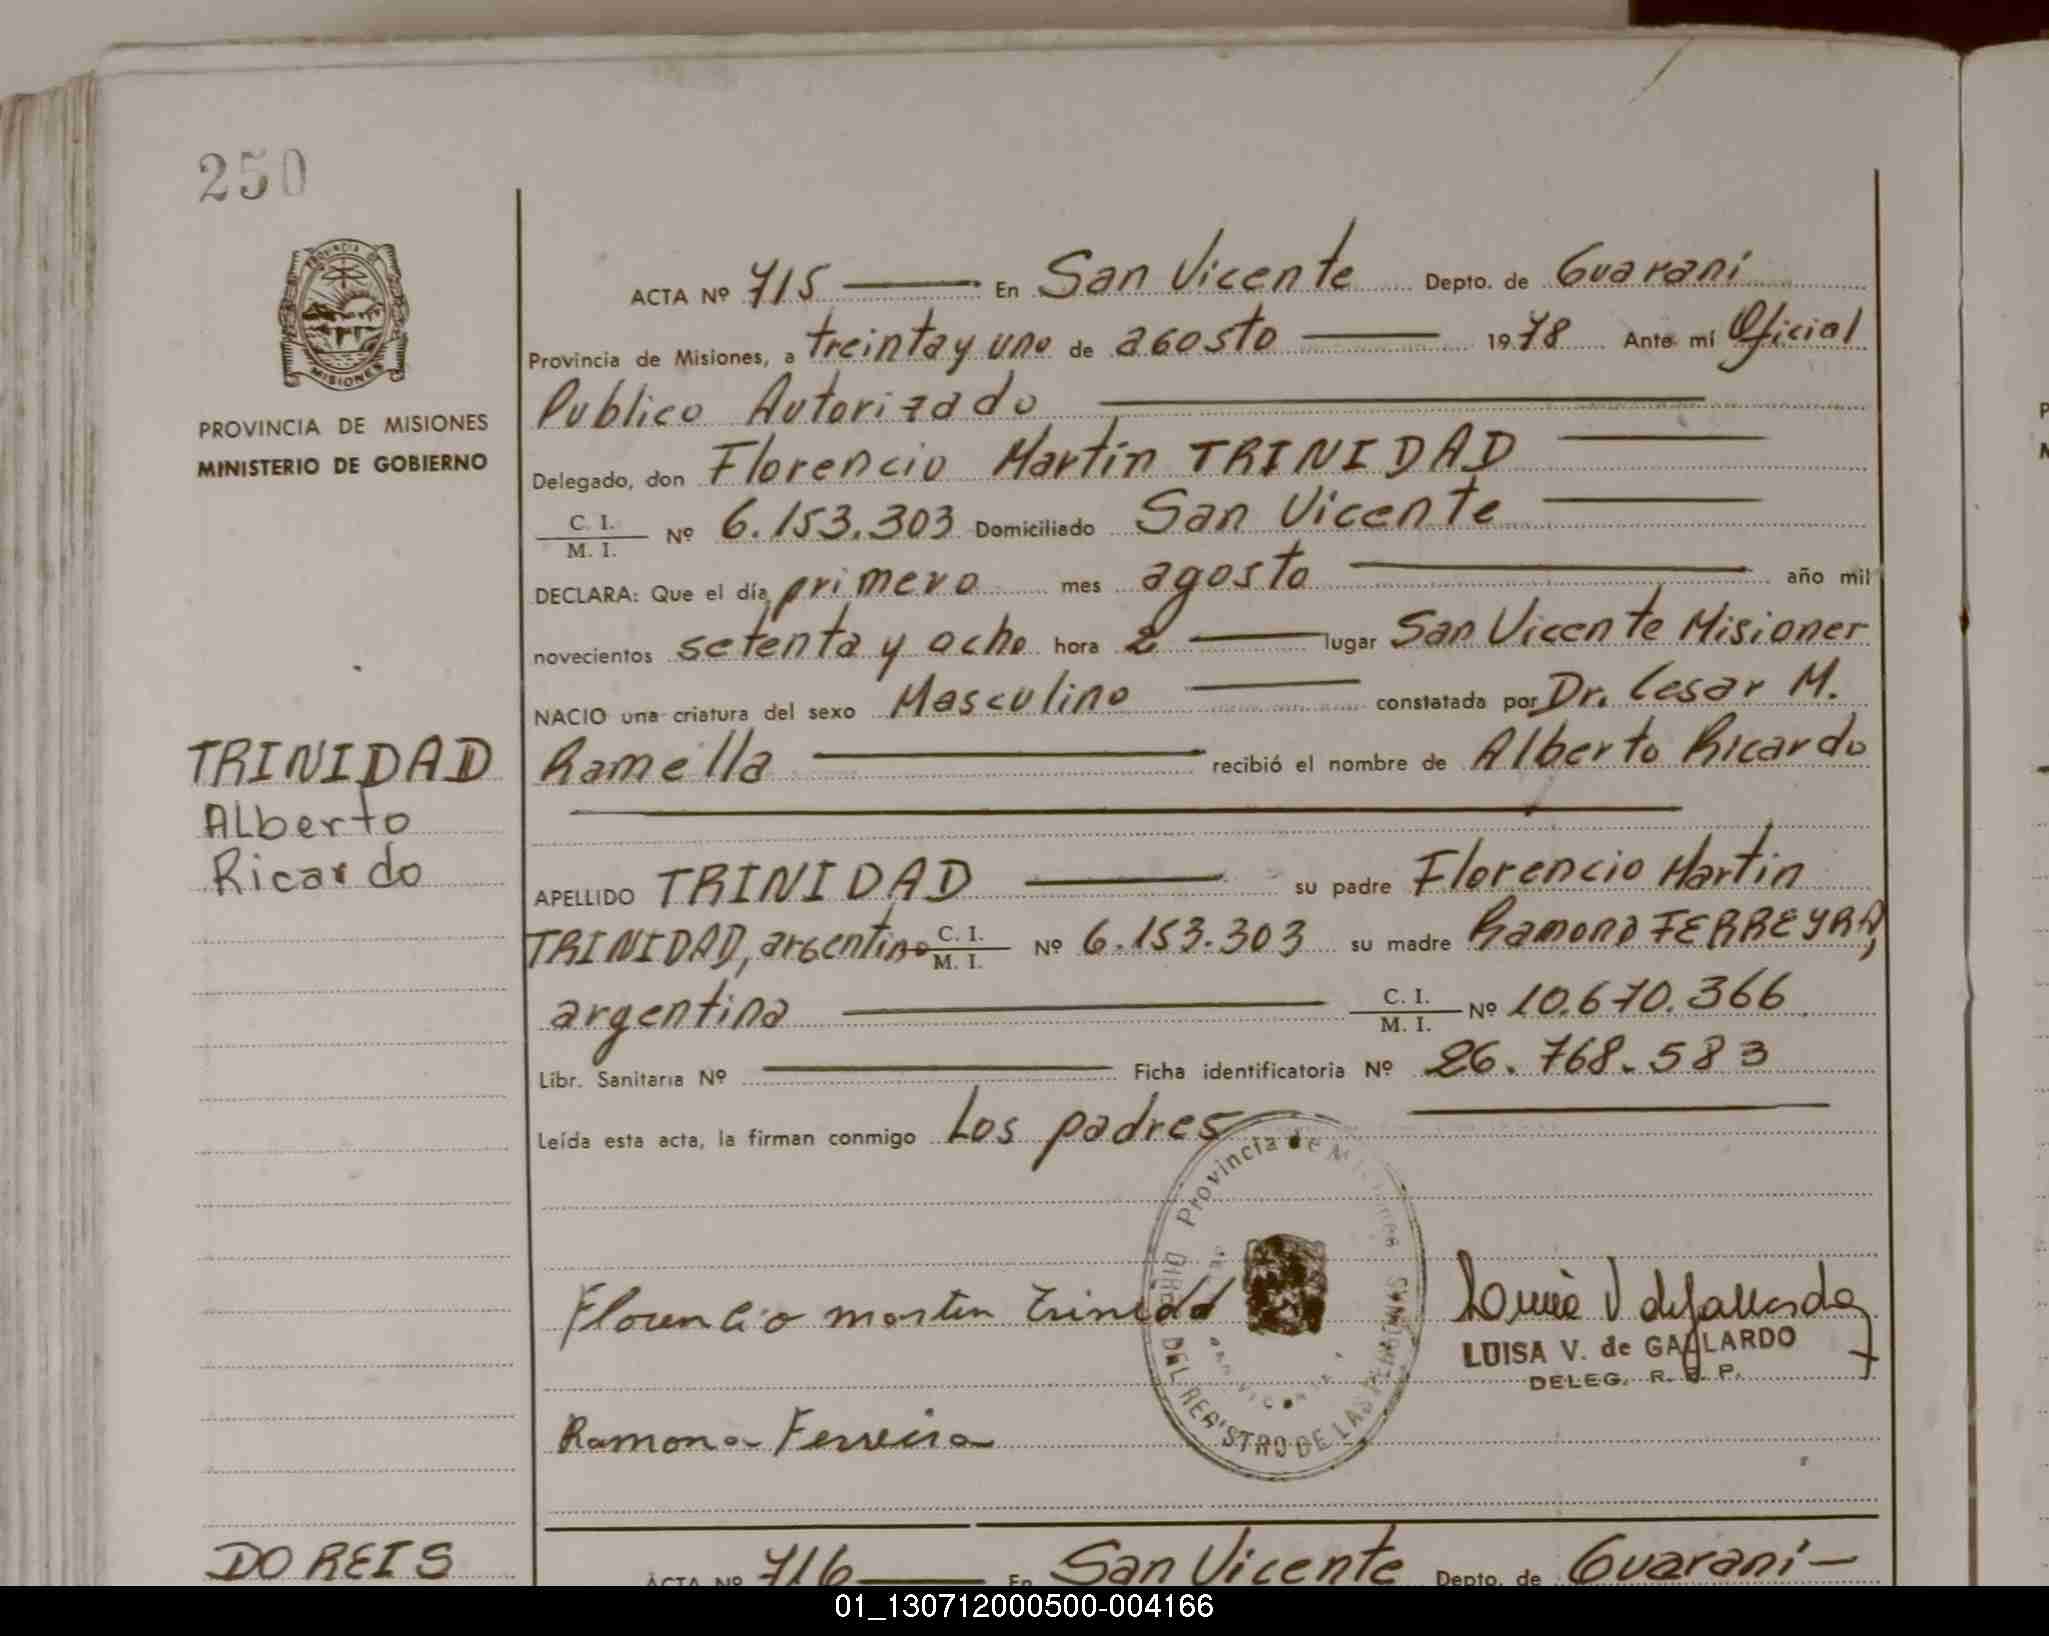 250
PROVINCIA DE MISIONES
MINISTERIO DE GOBIERNO
TRINIDAD
Alberto
Ricardo
ACTA Nº 715 En San Vicente Depto. de Guarani
Provincia de Misiones, a treinta y uno de agosto 1978 Ante mí Oficial
Publico Autorizado
Delegado, don Florencio Martin TRINIDAD
C. I.
M. I. Nº 6.153.303 Domiciliado San Vicente
DECLARA: Que el día primero mes agosto año mil
novecientos setenta y ocho hora 2 lugar San Vicente Misiones
NACIO una criatura del sexo Masculino constatada por Dr. Cesar M.
Ramella recibió el nombre de Alberto Ricardo
APELLIDO TRINIDAD su padre Florencio Martin
TRINIDAD, argentino C. I. M. I. Nº 6.153.303 su madre Ramona FERREYRA,
argentina C. I. M. I. Nº 10.670.366
Libr. Sanitaria Nº Ficha identificatoria Nº 26.768.583
Leída esta acta, la firman conmigo Los padres
Provincia de Misiones
DEL REGISTRO DE LAS PERSONAS
Florencio martin Trinidad
LUISA V. de GALLARDO
DELEG. R. P.
Ramona Ferreira
DO REIS
ACTA Nº 716 En San Vicente Depto. de Guarani
01_130712000500-004166